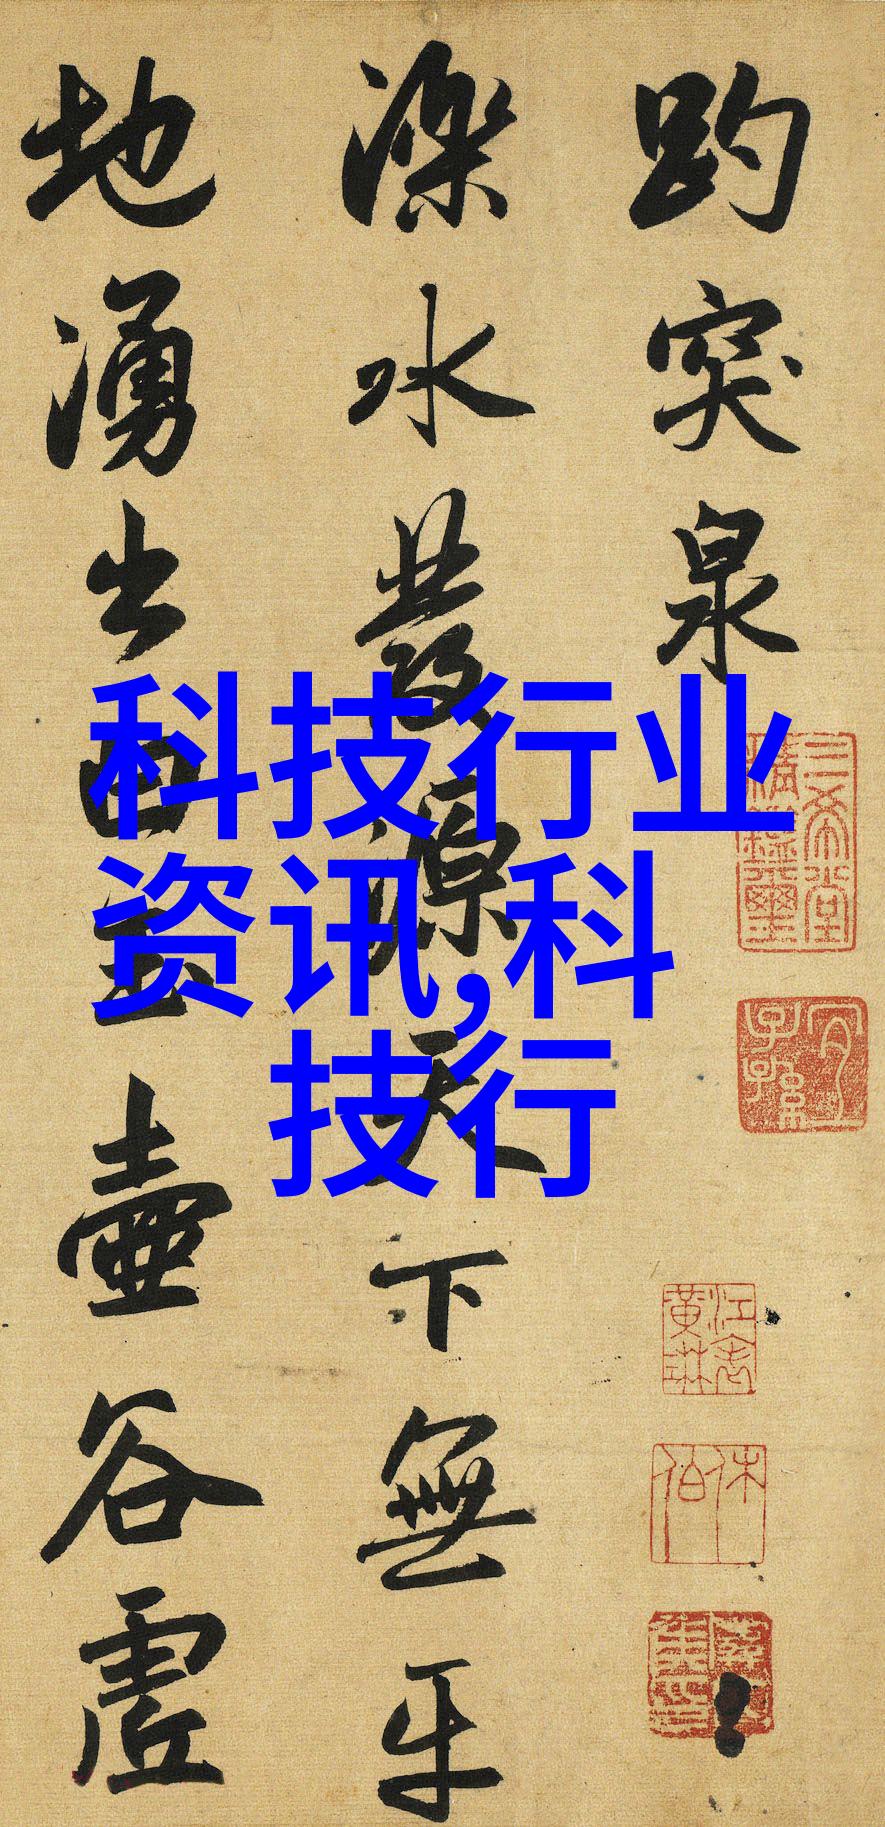 趵突泉
濼水發源天下無
平
地湧出白玉壺
谷虛
科技行业
资讯,科
技行